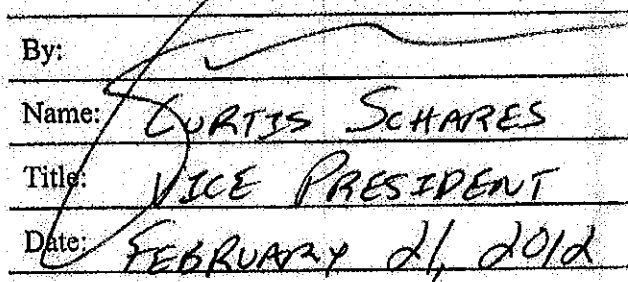 By:
Name: CURTIS SCHARES
Title: VICE PRESIDENT
Date: FEBRUARY 21, 2012